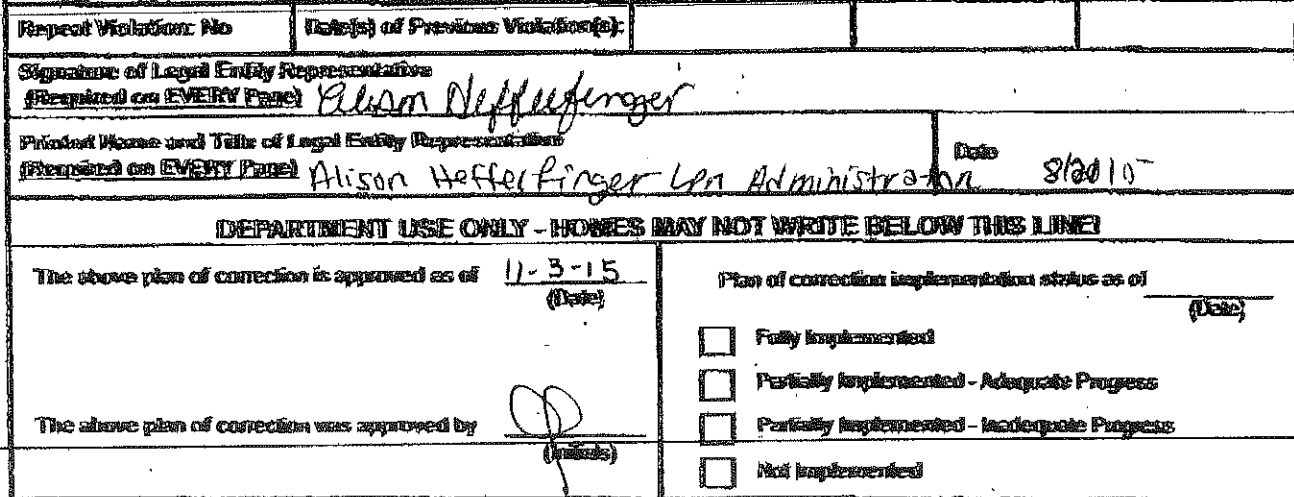 Repeat Violation: No Date(s) of Previous Violation(s):
Signature of Legal Entity Representative
(Required on EVERY Page) Alison Heffelfinger
Printed Name and Title of Legal Entity Representative
(Required on EVERY Page) Alison Heffelfinger LPN Administrator Date
DEPARTMENT USE ONLY - HOMES MAY NOT WRITE BELOW THIS LINE!
The above plan of correction is approved as of 11-3-15
(Date)
Plan of correction implementation status as of
(Date)
Fully Implemented
Partially Implemented - Adequate Progress
The above plan of correction was approved by
(Initials)
Partially Implemented - Inadequate Progress
Not Implemented